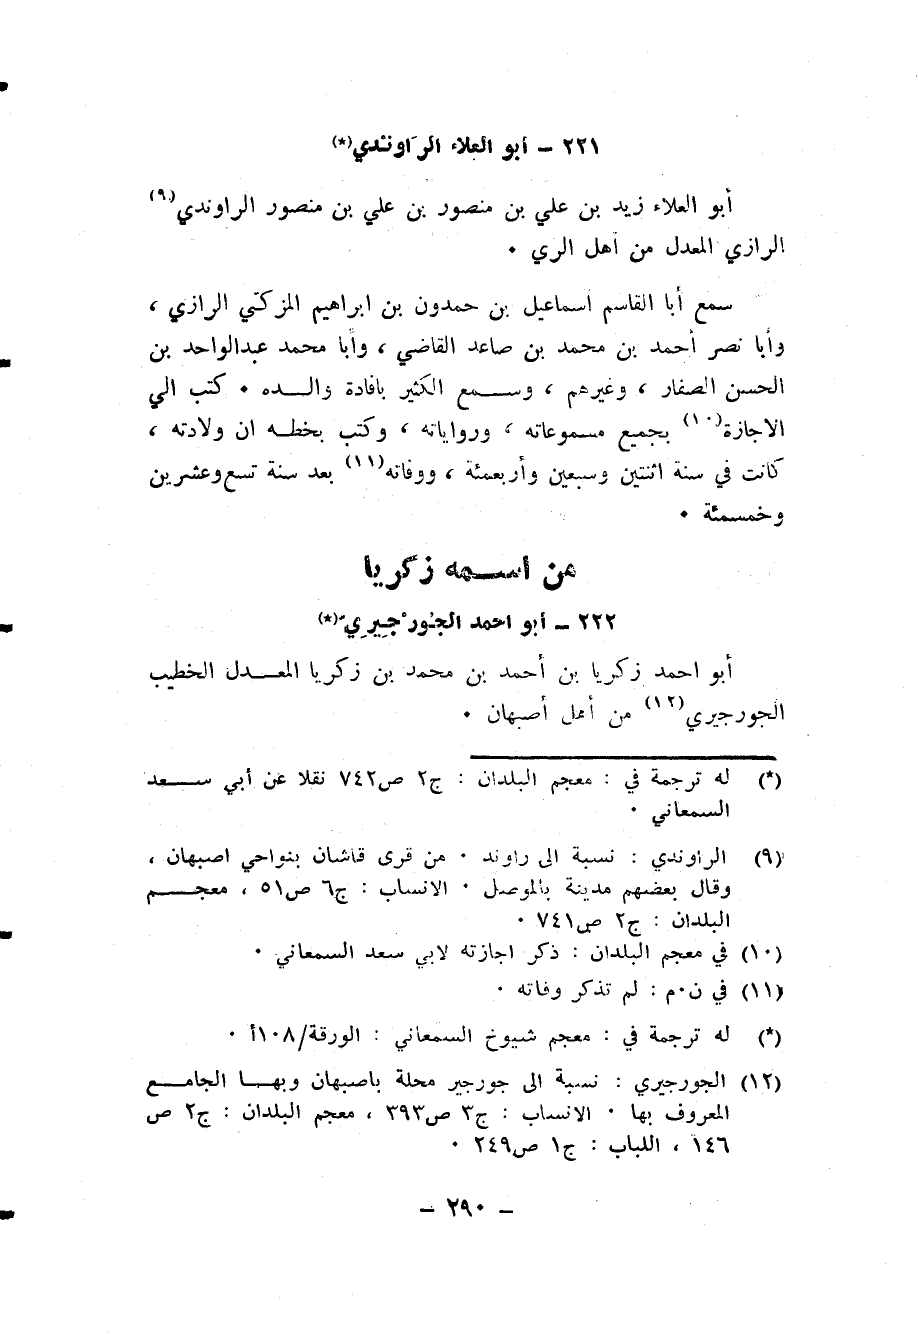 ٢٢١ – أبو العلاء الرَاونْدي(*)
أبو العلاء زيد بن علي بن منصور بن علي بن منصور الراوندي(٩)
الرازي المعدل من أهل الري ٠
سمع أبا القاسم اسماعيل بن حمدون بن ابراهيم المزكتي الرازي ،
وأبا نصر أحمد بن محمد بن صاعد القاضي ، وأبا محمد عبدالواحد بن
الحسن الصفار ، وغيرهم ، وسمع الكثير بافادة والده ٠ كتب الي
الاجازة(١٠) بجميع مسموعاته ، ورواياته ، وكتب بخطه ان ولادته ،
كانت في سنة اثنتين وسبعين وأربعمئة ، ووفاته(١١) بعد سنة تسع وعشرين
وخمسمئة ٠
من اسمه زكريا
٢٢٢ – أبو احمد الجُورْجِيرِي(*)
أبو احمد زكريا بن أحمد بن محمد بن زكريا المعدل الخطيب
الجورجيري(١٢) من أهل أصبهان ٠
(*) له ترجمة في : معجم البلدان : ج٢ ص٧٤٢ نقلا عن أبي سعد
السمعاني ٠
(٩) الراوندي : نسبة الى راوند ٠ من قرى قاشان بنواحي اصبهان ،
وقال بعضهم مدينة بالموصل ٠ الانساب : ج٦ ص٥١ ، معجم
البلدان : ج٢ ص٧٤١ ٠
(١٠) في معجم البلدان : ذكر اجازته لابي سعد السمعاني ٠
(١١) في ن٠م : لم تذكر وفاته ٠
(*) له ترجمة في : معجم شيوخ السمعاني : الورقة/١٠٨أ ٠
(١٢) الجورجيري : نسبة الى جورجير محلة باصبهان وبها الجامع
المعروف بها ٠ الانساب : ج٣ ص٣٩٣ ، معجم البلدان : ج٢ ص
١٤٦ ، اللباب : ج١ ص٢٤٩ ٠
– ٢٩٠ –